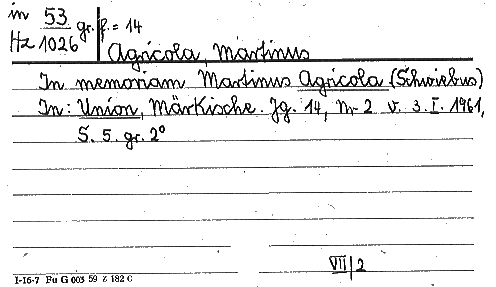 in 53 gr. f. = 14
Hz 1026
Agricola, Martinus
In memoriam Martinus Agricola (Schwiebus)
In: Union, Märkische. Jg. 14, Nr 2 v. 3. I. 1961,
S. 5. gr. 2°
VII/2
I-16-7 Fu G 003 59 Z 182 C